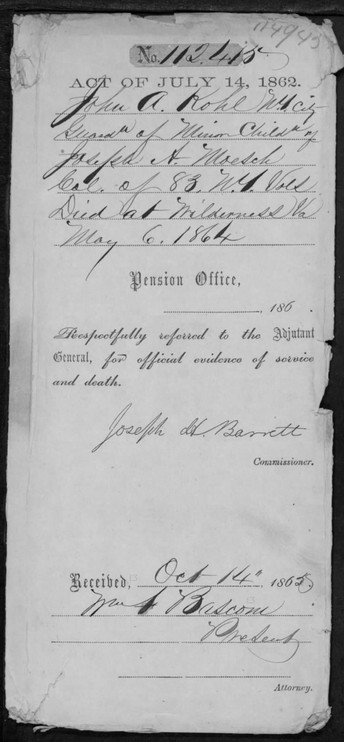 114945
No. 112.415
ACT OF JULY 14, 1862.
John A. Kohl NY City
Guardn of Minor Childn of
Joseph A. Moesch
Col. of 83. N.Y. Vols
Died at Wilderness Va
May 6. 1864
Pension Office,
, 186 .
Respectfully referred to the Adjutant
General, for official evidence of service
and death.
Joseph H. Barrett
Commissioner.
Received, Oct 14" 1865
Wm Bascom
Present
Attorney.